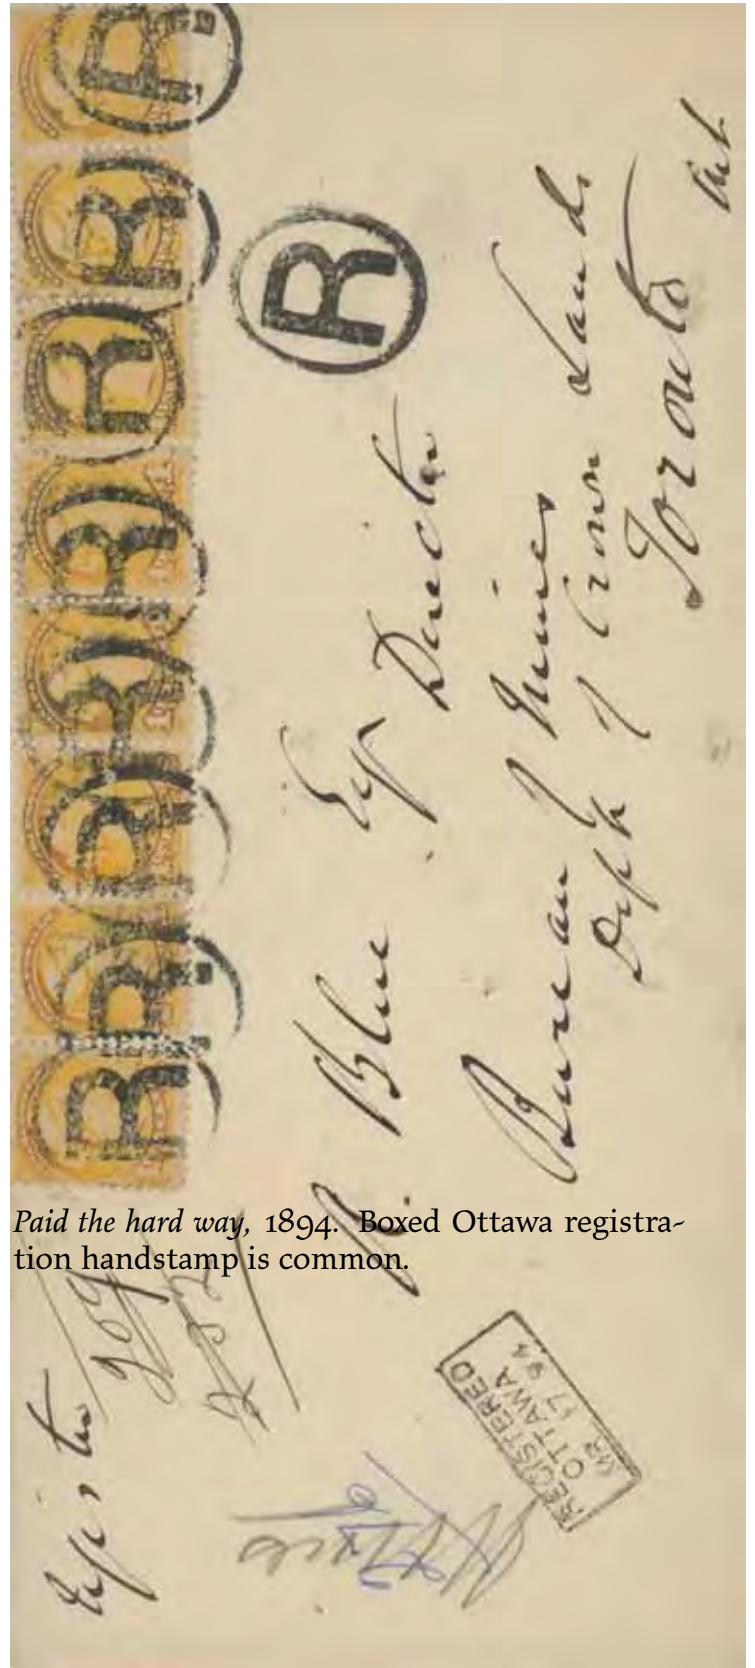 R R R R R R R R
R
A. Blue Esq Director
Bureau of Mines
Dept of Crown Lands
Toronto Ont
Paid the hard way, 1894. Boxed Ottawa registra-
tion handstamp is common.
Register
209
232
REGISTERED
OTTAWA
MR 17 94